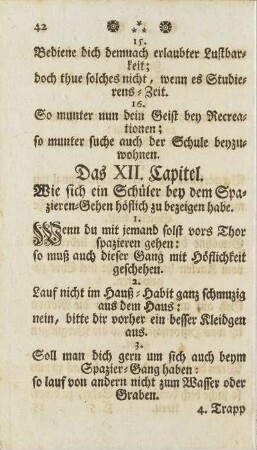 42 * * * *
15.
Bediene dich demnach erlaubter Lustbar-
keit;
doch thue solches nicht, wenn es Studie-
rens-Zeit.
16.
So munter nun dein Geist bey Recrea-
tionen;
so munter suche auch der Schule beyzu-
wohnen.
Das XII. Capitel.
Wie sich ein Schüler bey dem Spa-
zieren-Gehen höflich zu bezeigen habe.
1.
Wenn du mit jemand solst vors Thor
spazieren gehen:
so muß auch dieser Gang mit Höflichkeit
geschehen.
2.
Lauf nicht im Hauß-Habit ganz schmuzig
aus dem Haus:
nein, bitte dir vorher ein besser Kleidgen
aus.
3.
Soll man dich gern um sich auch beym
Spazier-Gang haben:
so lauf von andern nicht zum Wasser oder
Graben.
4. Trapp